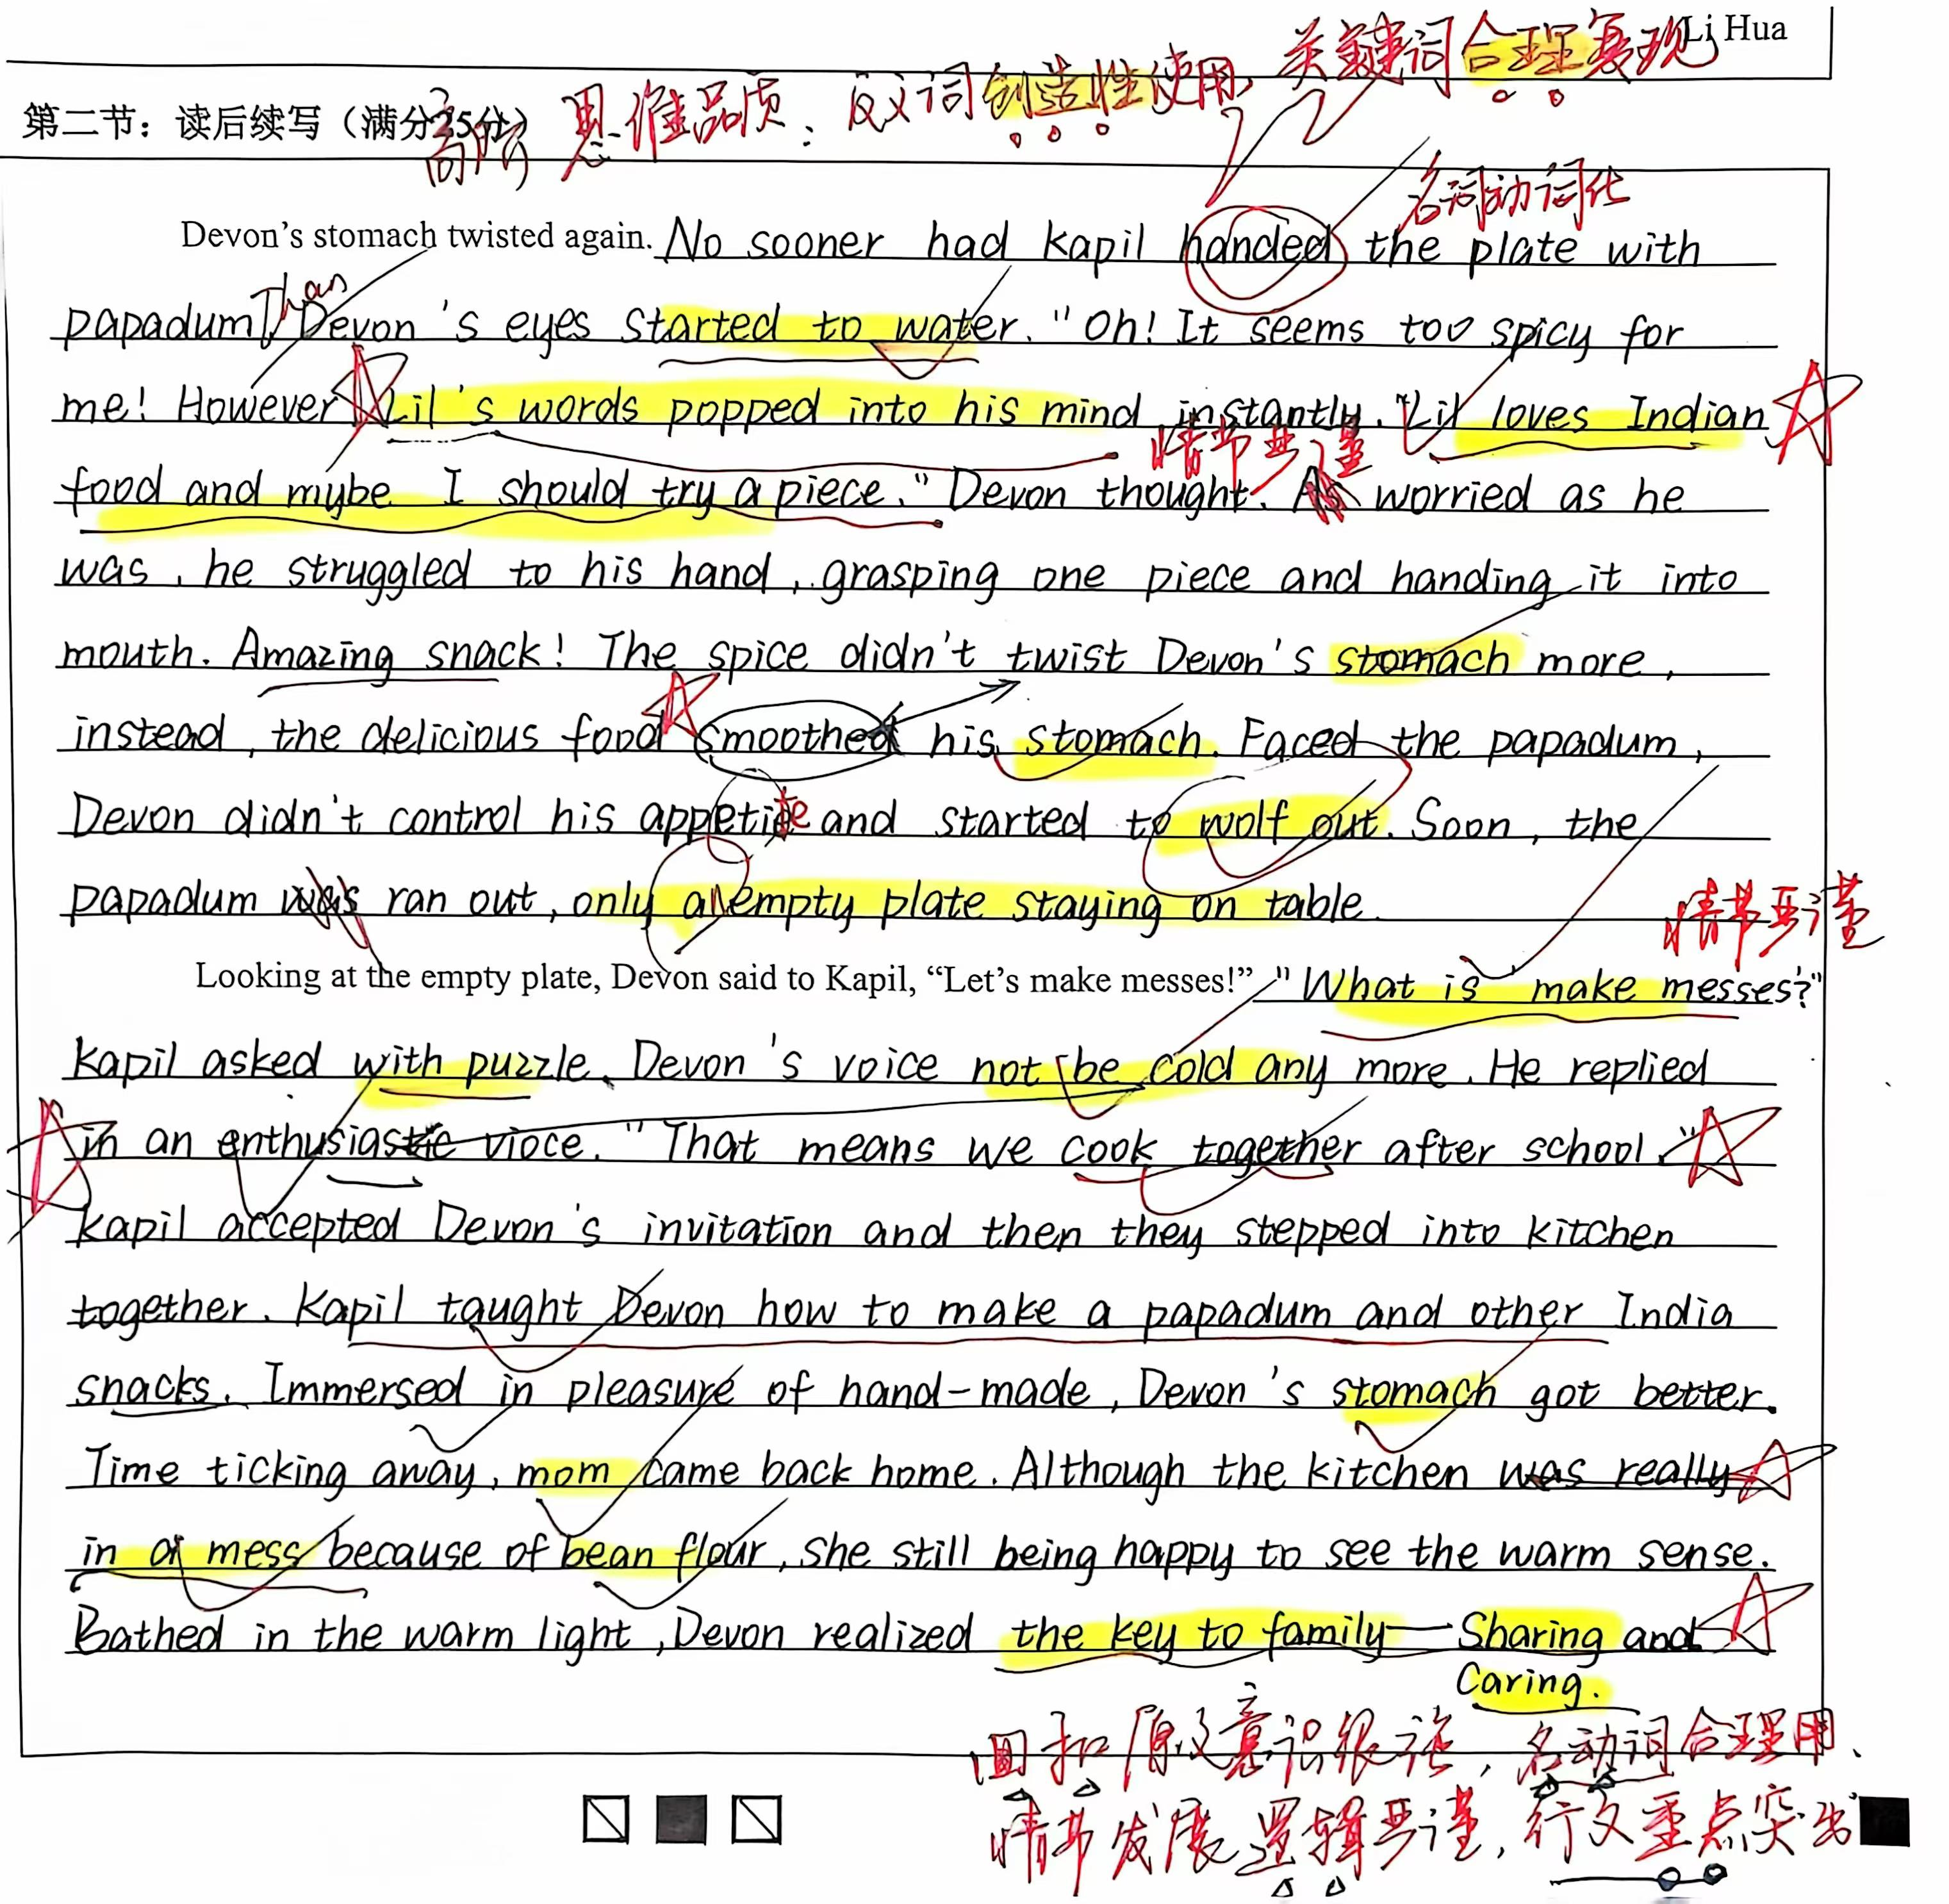 Li Hua
关键词合理复现
第二节：读后续写（满分25分）
思维品质：反义词创造性使用、
名词动词化
Devon's stomach twisted again. No sooner had Kapil handed the plate with
Than
papadum, Devon's eyes started to water. "Oh! It seems too spicy for
me! However Lil's words popped into his mind instantly. "Lil loves Indian
情节严谨
food and mybe I should try a piece." Devon thought. As worried as he
was, he struggled to his hand, grasping one piece and handing it into
mouth. Amazing snack! The spice didn't twist Devon's stomach more,
instead, the delicious food smoothed his stomach. Faced the papadum,
Devon didn't control his appetite and started to wolf out. Soon, the
papadum was ran out, only an empty plate staying on table.
情节严谨
Looking at the empty plate, Devon said to Kapil, “Let's make messes!” "What is make messes?"
Kapil asked with puzzle. Devon's voice not be cold any more. He replied
in an enthusiastic vioce. "That means we cook together after school."
Kapil accepted Devon's invitation and then they stepped into kitchen
together. Kapil taught Devon how to make a papadum and other India
snacks. Immersed in pleasure of hand-made, Devon's stomach got better.
Time ticking away, mom came back home. Although the kitchen was really
in a mess because of bean flour, she still being happy to see the warm sense.
Bathed in the warm light, Devon realized the key to family—Sharing and
Caring.
回扣原文意识很强，名动词合理用、
情节发展逻辑严谨，行文重点突出